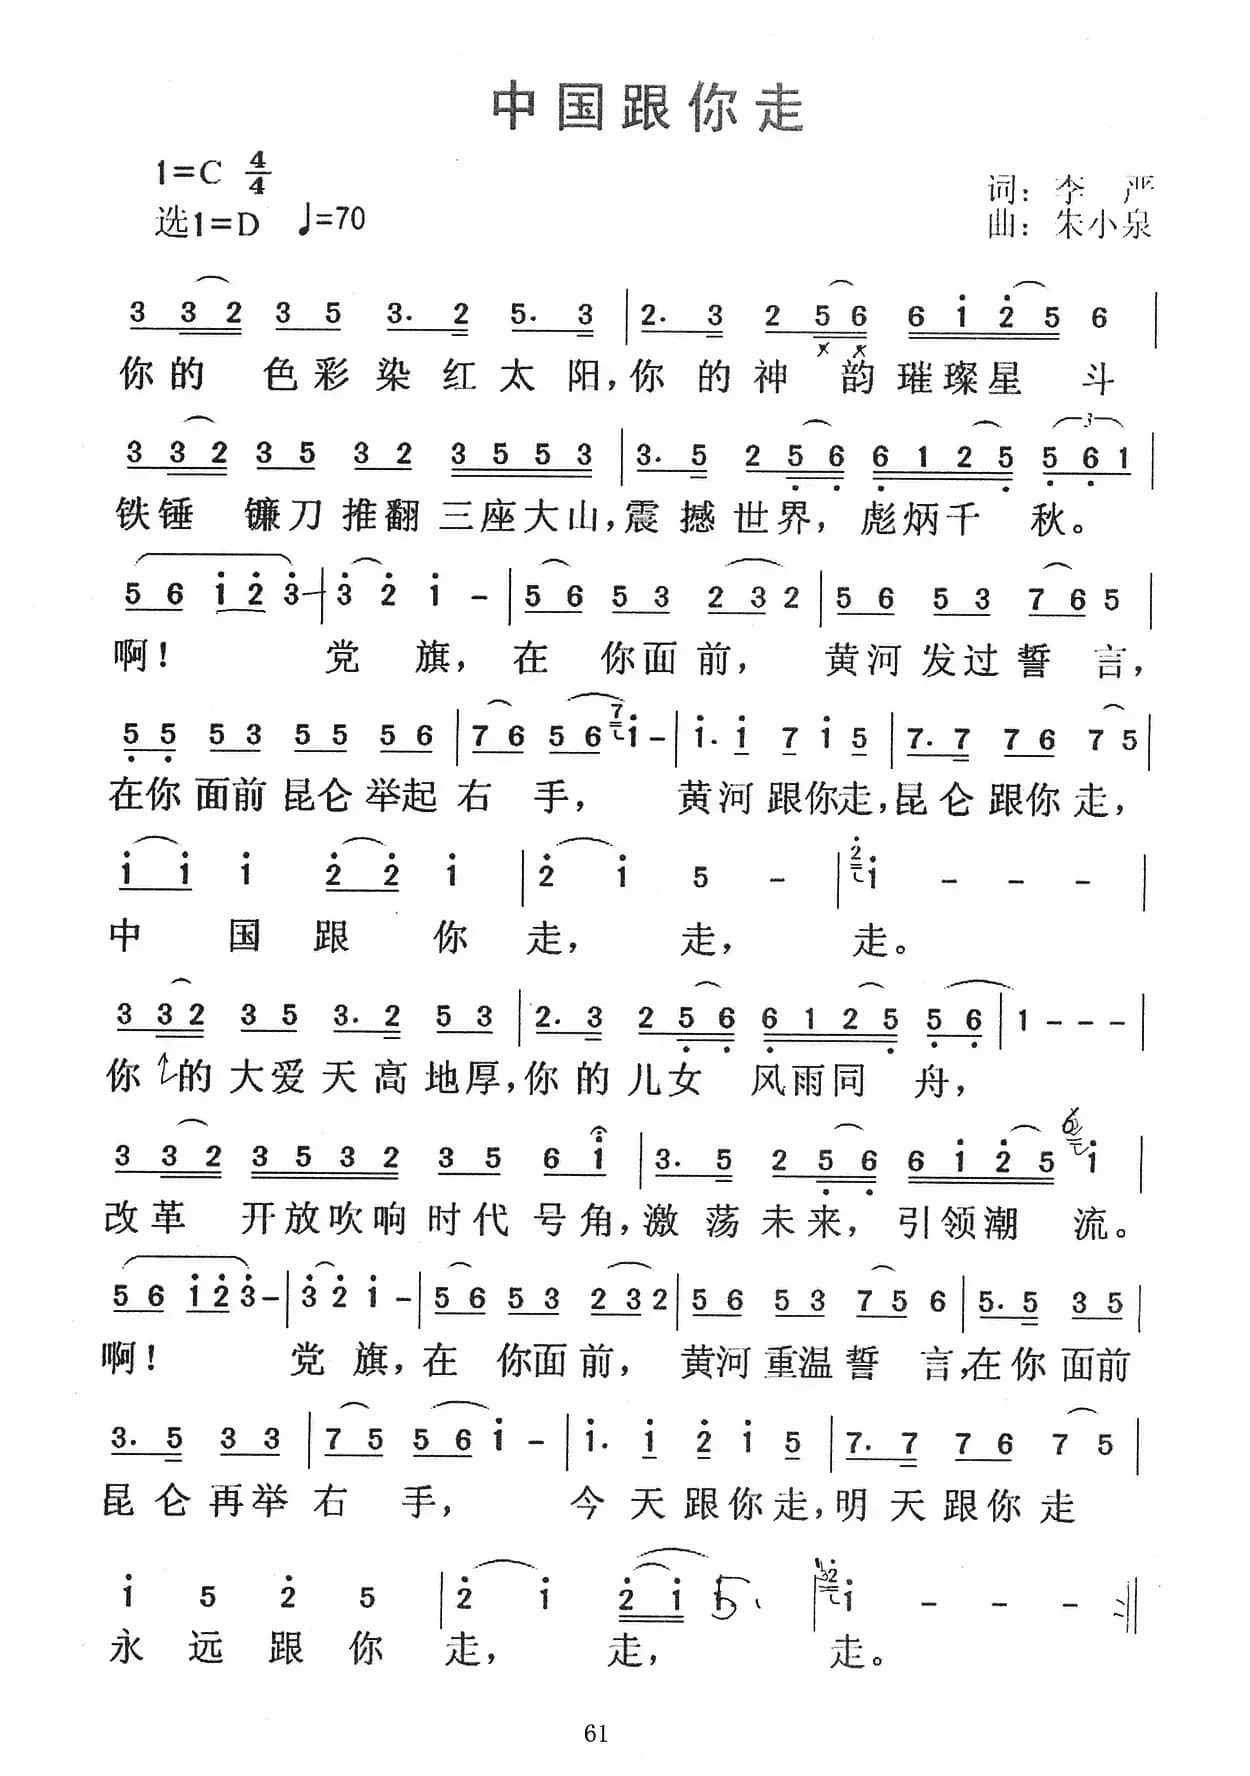 中国跟你走
1=C 4/4
词：李 严
选1=D ♩=70
曲：朱小泉
3 3 2 3 5 3. 2 5. 3 | 2. 3 2 5 6 6 i̇ 2̇ 5 6 |
你的 色彩染红太阳，你的神韵璀璨星斗
3 3 2 3 5 3 2 3 5 5 3 | 3. 5 2 5̣ 6̣ 6̣ 1 2 5̣ 5̣ 6̣ 1 |
铁锤 镰刀推翻三座大山，震撼世界，彪炳千秋。
5 6 i̇ 2̇ 3̇ - | 3̇ 2̇ i̇ - | 5 6 5 3 2 3 2 | 5 6 5 3 7 6 5 |
啊！ 党旗，在你面前，黄河发过誓言，
5̣ 5̣ 5 3 5 5 5 6 | 7 6 5 6 7 i̇ - | i̇. i̇ 7 i̇ 5 | 7. 7 7 6 7 5 |
在你面前昆仑举起右手，黄河跟你走，昆仑跟你走，
i̇ i̇ i̇ 2̇ 2̇ i̇ | 2̇ i̇ 5 - | 2̇ i̇ - - - |
中国跟你走，走，走。
3 3 2 3 5 3. 2 5 3 | 2. 3 2 5̣ 6̣ 6̣ 1 2 5̣ 5̣ 6̣ | 1 - - - |
你的大爱天高地厚，你的儿女风雨同舟，
3 3 2 3 5 3 2 3 5 6 i̇ | 3. 5 2 5̣ 6̣ 6 i̇ 2̇ 5 6 i̇ |
改革 开放吹响时代号角，激荡未来，引领潮流。
5 6 i̇ 2̇ 3̇ - | 3̇ 2̇ i̇ - | 5 6 5 3 2 3 2 | 5 6 5 3 7 5 6 | 5. 5 3 5 |
啊！ 党旗，在你面前，黄河重温誓言，在你面前
3. 5 3 3 | 7 5 5 6 i̇ - | i̇. i̇ 2̇ i̇ 5 | 7. 7 7 6 7 5 |
昆仑再举右手，今天跟你走，明天跟你走
i̇ 5 2̇ 5 | 2̇ i̇ 2̇ i̇ | 2̇ i̇ - - - :||
永远跟你走，走，走。
61